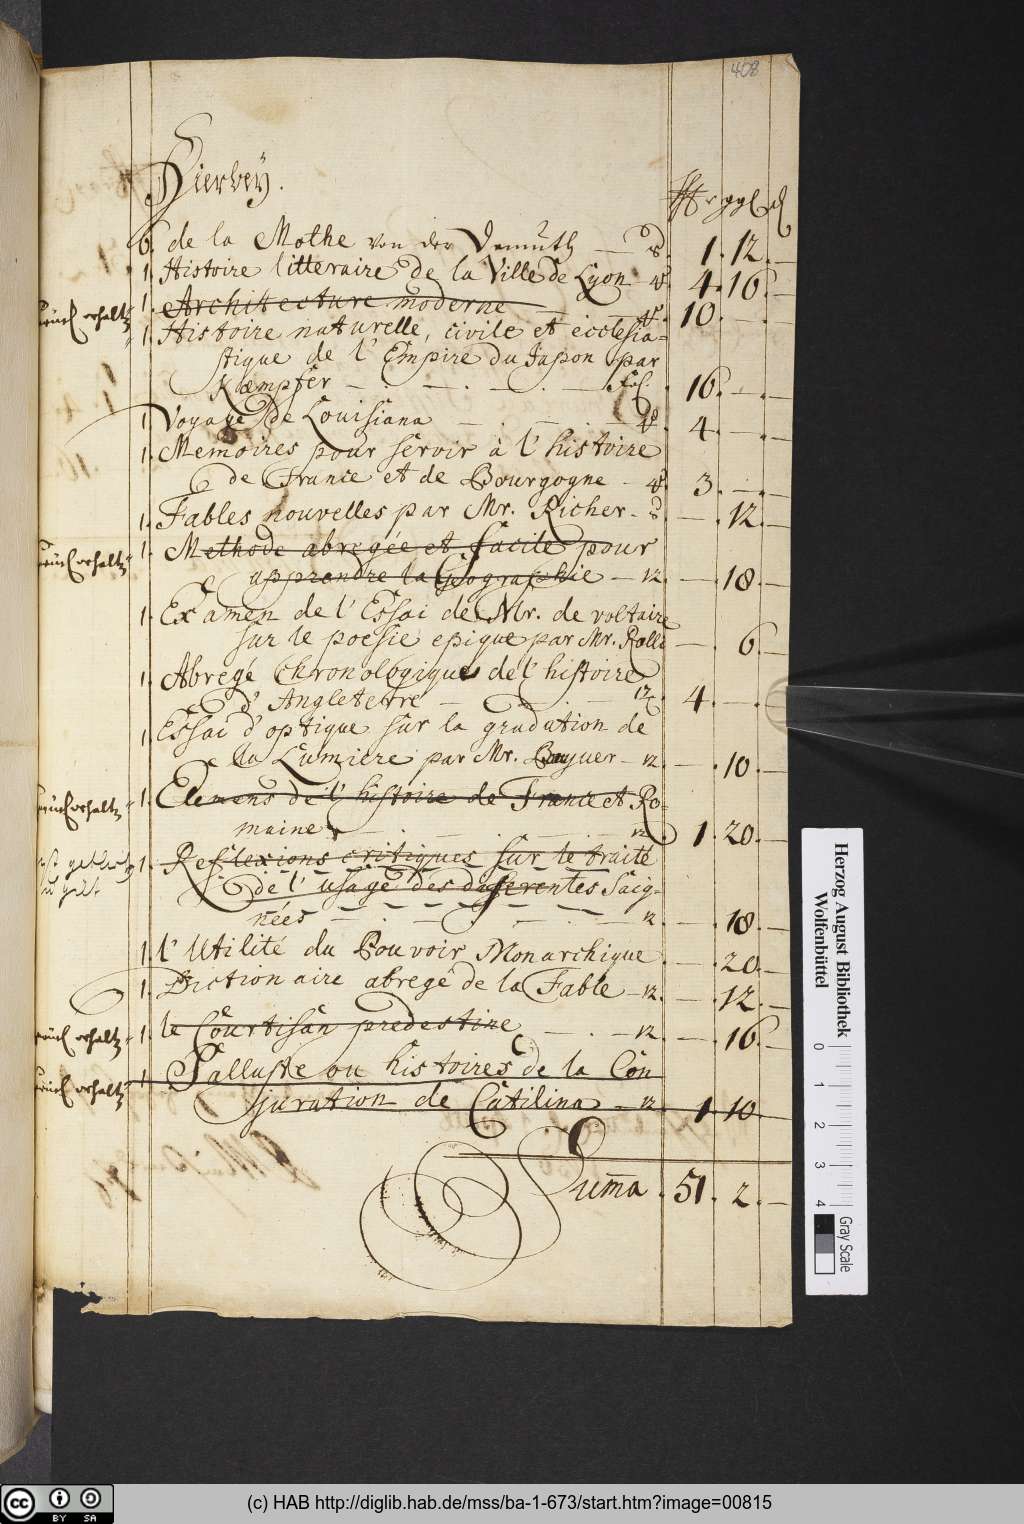 408
Hierbey.
ggl
6. de la Mothe von der Demuth — 8. 1. 12. —
1. Histoire litteraire de la Ville de Lyon 4º. 4. 16. —
zurück erhalten 1. Architecture moderne — 4º. 10. — . —
1. Histoire naturelle, civile et ecclesia-
stique de l'Empire du Japon par
Kaempfer — . — . — . — fol. 16. — . —
1. Voyage de Louisiana — . — . 4º. 4. — . —
1. Memoires pour servir à l'histoire
de France et de Bourgogne - 4º. 3. — . —
1. Fables nouvelles par Mr. Richer - 8. — . 12. —
zurück erhalten 1. Methode abregée et facile pour
apprendre la Geographie — 12. — . 18. —
1. Examen de l'Essai de Mr. de voltaire
sur le poesie epique par Mr. Rolli — . 6. —
1. Abregé Chronologique de l'histoire
d'Angleterre — . — . 12. 4. — . —
1. Essai d'optique sur la gradation de
la Lumiere par Mr. Bouguer — 12. — . 10. —
zurück erhalten 1. Elemens de l'histoire de France et Ro-
maine — . — . — . — 12. 1. 20. —
1. Reflexions critiques sur le traité
de l'usage des differentes Saig-
nées — . — . — . — 12. — . 18. —
1. l'Utilité du Pouvoir Monarchique . — . 20. —
1. Dictionaire abregé de la Fable — 12. — . 12. —
zurück erhalten 1. le Courtisan predestine — . — 12. — . 16. —
zurück erhalten 1. Salluste ou histoires de la Con
juration de Catilina — 12. 1. 10. —
Suma . 51. 2. —
Herzog August Bibliothek
Wolfenbüttel
0 1 2 3 4
Gray Scale
cc BY SA
(c) HAB http://diglib.hab.de/mss/ba-1-673/start.htm?image=00815